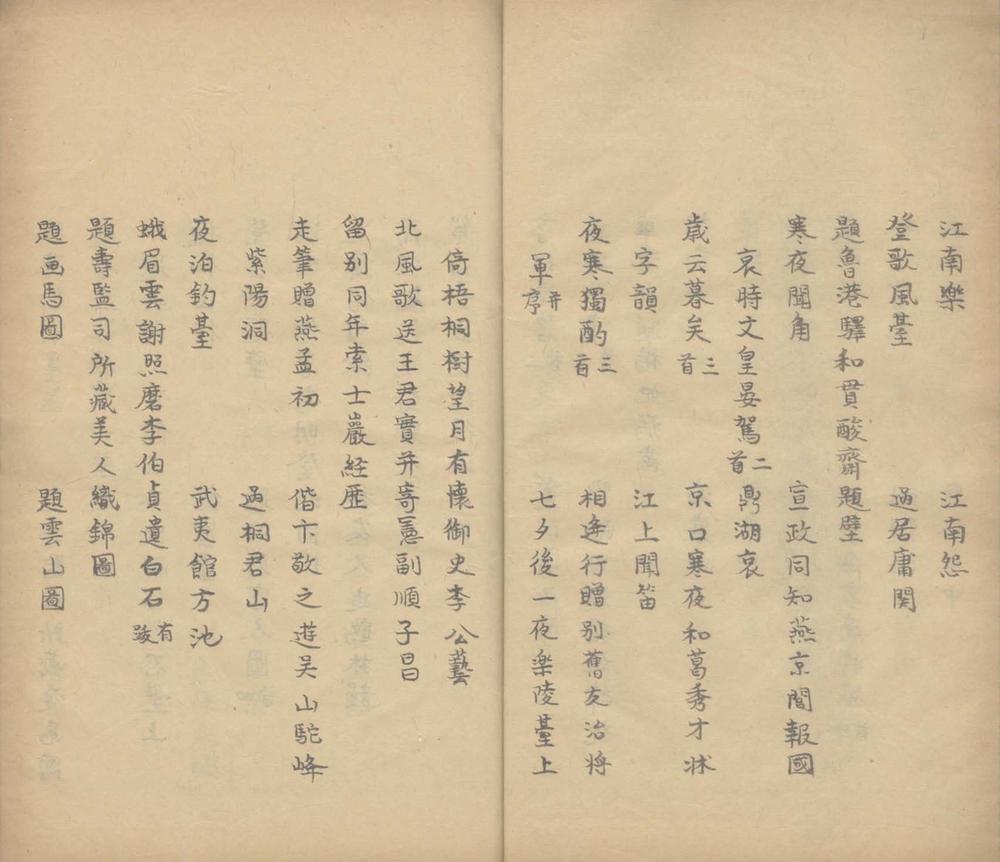 江南樂 江南怨
登歌風臺 過居庸関
題魯港驛和貫酸齋題壁
寒夜聞角 宣政同知燕京閭報國
哀時文皇晏駕二首 鼎湖哀
歲云暮矣三首 京口寒夜和葛秀才牀
字韻 江上聞笛
夜寒獨酌三首 相逢行贈别舊友治將
軍并序 七夕後一夜樂陵臺上
倚梧桐樹望月有懷御史李公藝
北風歌送王君實并寄憲副順子昌
留别同年索士巖経歴
走筆贈燕孟初 偕卞敬之遊吴山駝峰
紫陽洞 過桐君山
夜泊釣臺 武夷館方池
蛾眉雲謝照磨李伯貞遺白石有跋
題壽監司所藏美人織錦圖
題画馬圖 題雲山圖